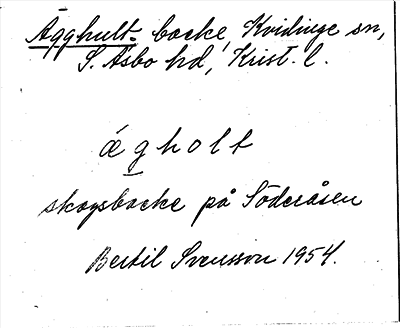 Ägghult- backe, Kvidinge sn,
S. Åsbo hd, Krist. l.
ǽgholt
skogsbacke på Söderåsen
Bertil Svensson 1954.